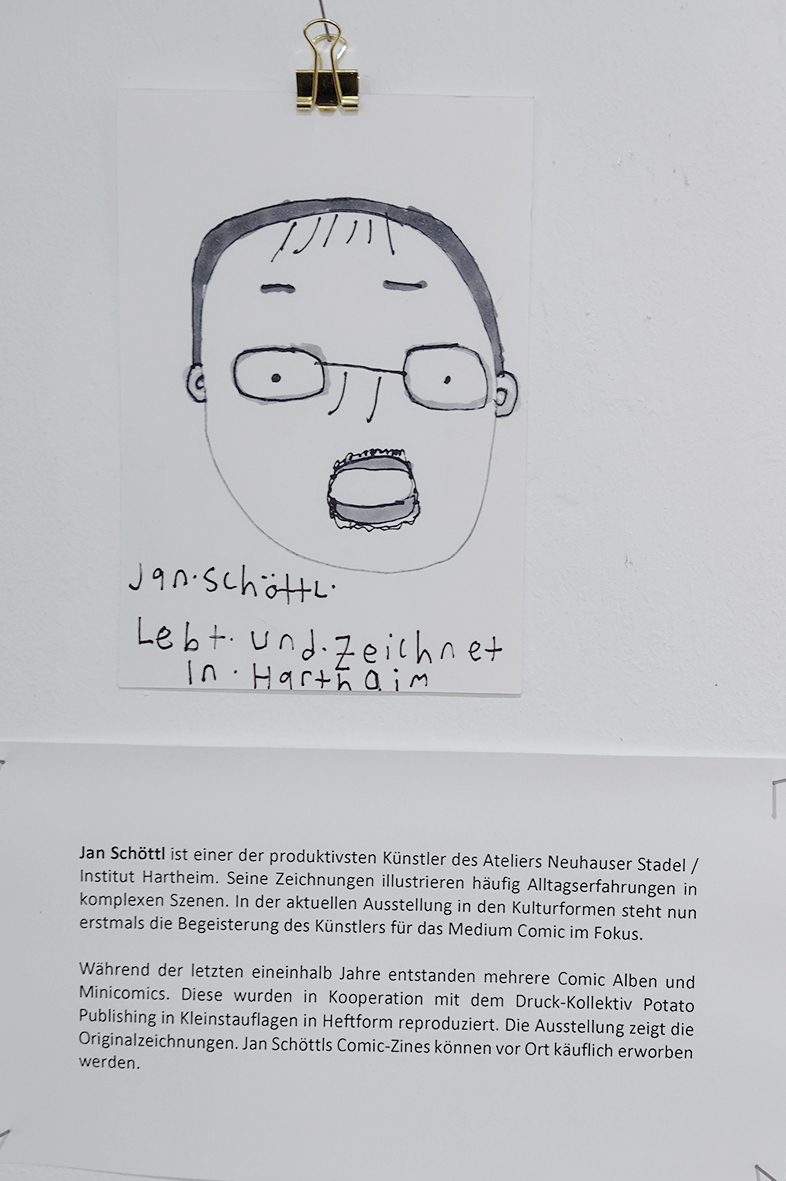 Jan·Schöttl·
Lebt· und·zeichnet
In· Harthaim
Jan Schöttl ist einer der produktivsten Künstler des Ateliers Neuhauser Stadel /
Institut Hartheim. Seine Zeichnungen illustrieren häufig Alltagserfahrungen in
komplexen Szenen. In der aktuellen Ausstellung in den Kulturformen steht nun
erstmals die Begeisterung des Künstlers für das Medium Comic im Fokus.
Während der letzten eineinhalb Jahre entstanden mehrere Comic Alben und
Minicomics. Diese wurden in Kooperation mit dem Druck-Kollektiv Potato
Publishing in Kleinstauflagen in Heftform reproduziert. Die Ausstellung zeigt die
Originalzeichnungen. Jan Schöttls Comic-Zines können vor Ort käuflich erworben
werden.